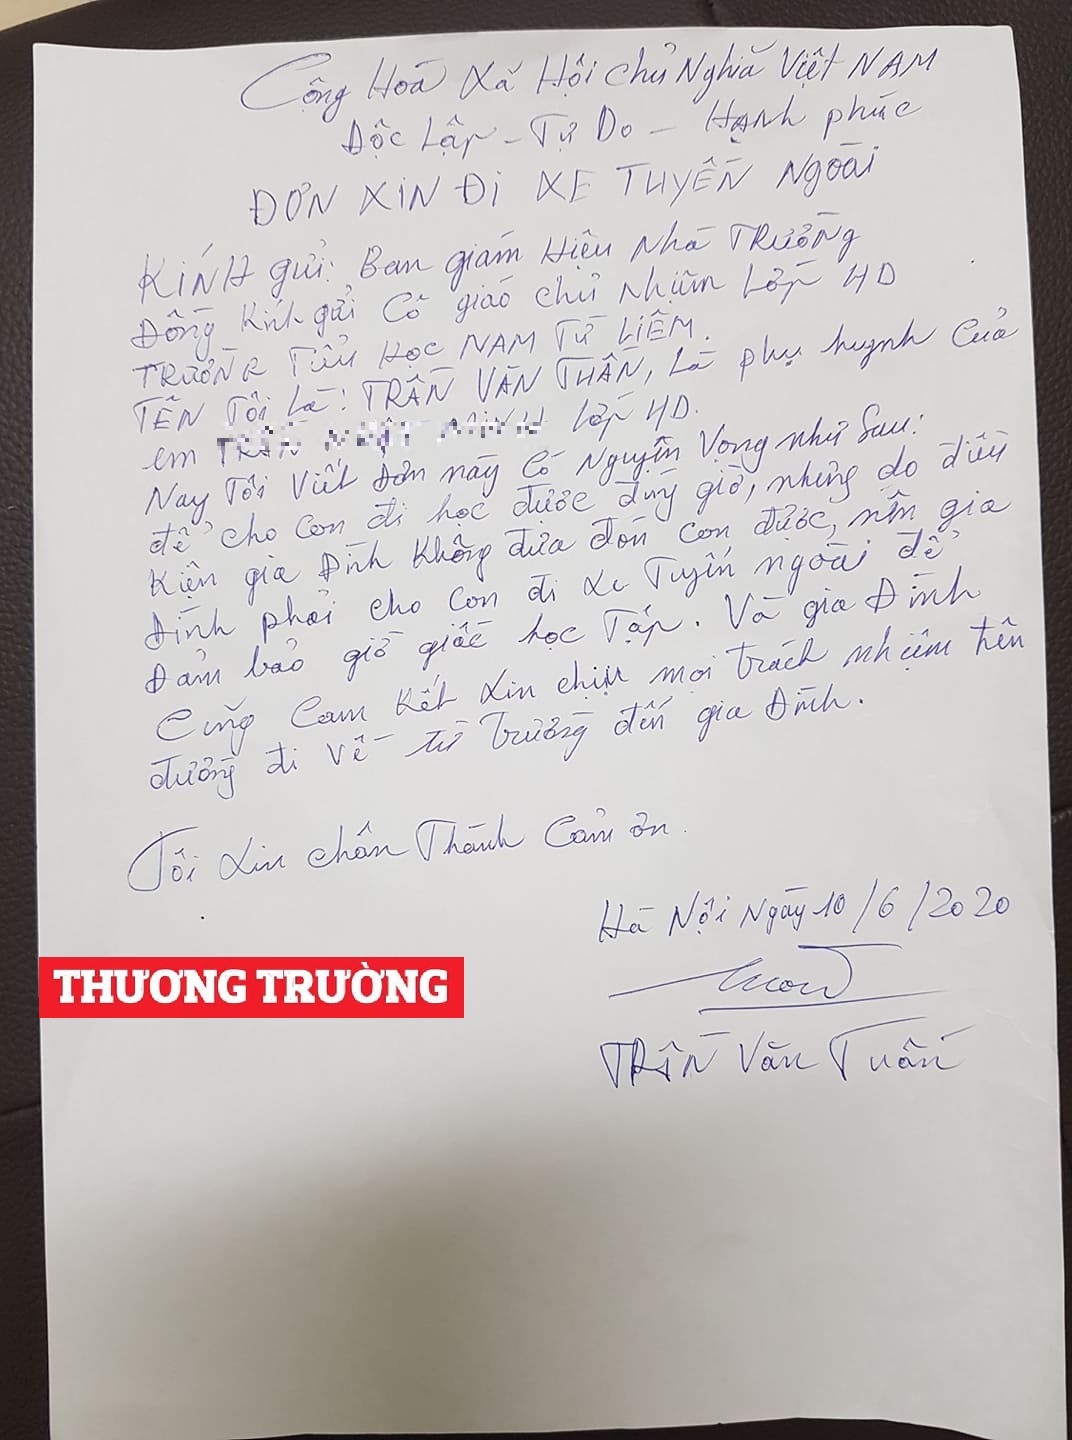 Cộng Hoà Xã Hội Chủ Nghĩa Việt NAM
Độc Lập - Tự Do - Hạnh phúc
ĐƠN XIN ĐI XE TUYẾN NGOÀI
KÍNH gửi: Ban giám Hiệu Nhà TRƯỜNG
Đồng Kính gửi Cô giáo chủ nhiệm Lớp 4D
TRƯỜNG TIỂU HỌC NAM TỪ LIÊM.
TÊN Tôi Là: TRẦN VĂN, Là phụ huynh của
em Lớp 4D.
Nay Tôi Viết Đơn này Có Nguyện Vọng như Sau:
để cho Con đi học được đúng giờ, nhưng do điều
Kiện gia Đình Không đưa đón Con được, nên gia
Đình phải cho Con đi Xe Tuyến ngoài để
Đảm bảo giờ giấc học Tập. Và gia Đình
Cũng Cam Kết Xin chịu mọi trách nhiệm trên
đường đi Về từ Trường đến gia Đình.
Tôi Xin chân Thành Cảm ơn.
Hà Nội Ngày 10/6/2020
TRẦN Văn Tuấn
THƯƠNG TRƯỜNG